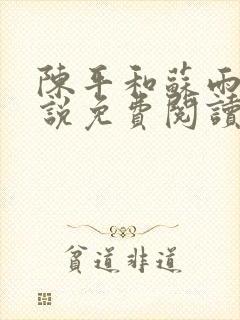 陳平和蘇雨
說免費閱讀
貧道非道